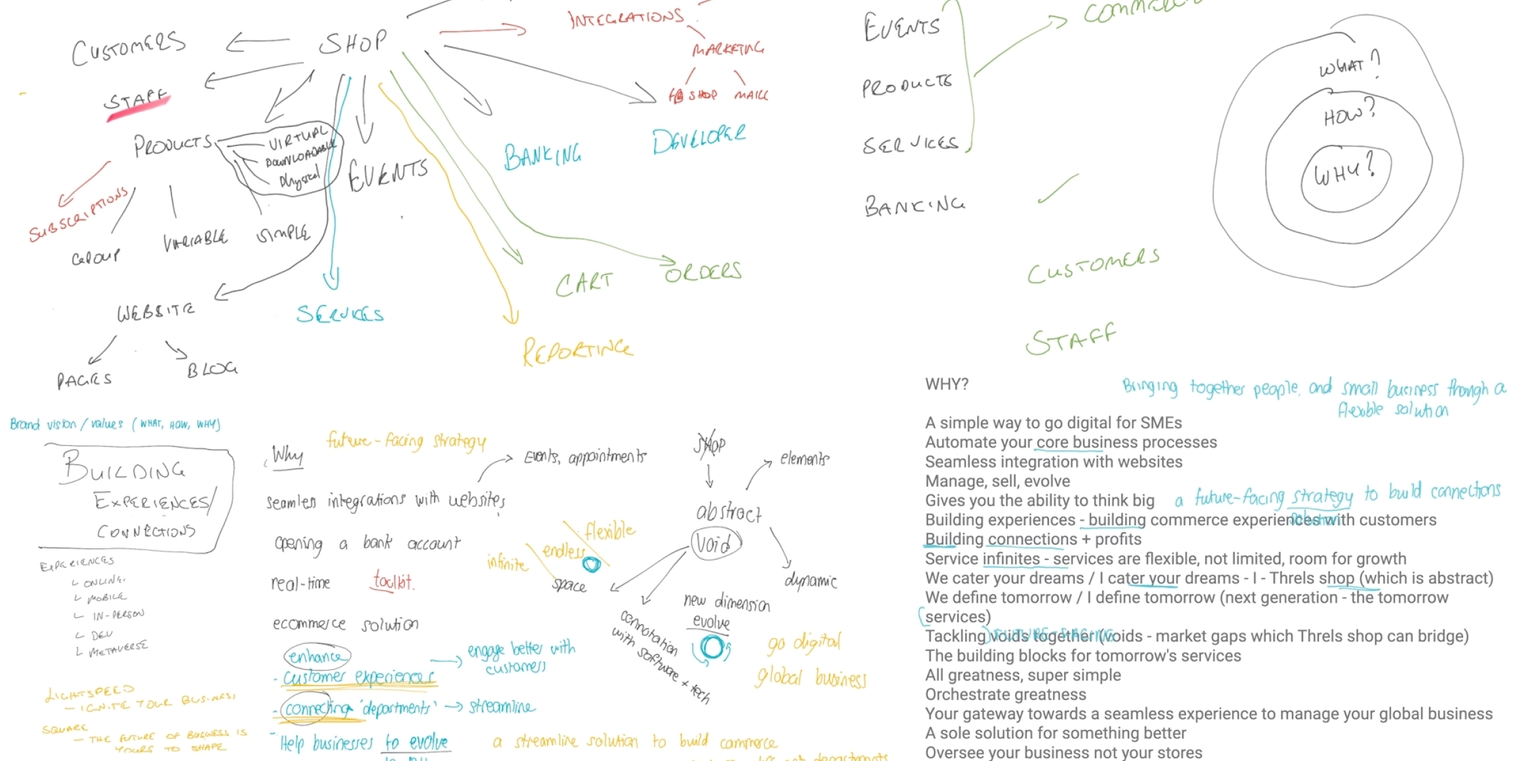 CUSTOMERS
SHOP
INTEGRATIONS
MARKETING
SHOP
MAIL
STAFF
PRODUCTS
VIRTUAL
DOWNLOADABLE
Physical
EVENTS
BANKING
DEVELOPER
SUBSCRIPTIONS
GROUP
VARIABLE
SIMPLE
CART
ORDERS
WEBSITE
SERVICES
REPORTING
PAGES
BLOG
EVENTS
PRODUCTS
SERVICES
BANKING
CUSTOMERS
STAFF
WHAT?
HOW?
WHY?
Brand vision / values (WHAT, HOW, WHY)
BUILDING
EXPERIENCES/
CONNECTIONS
EXPERIENCES
ONLINE.
MOBILE
IN-PERSON
DEV
METAVERSE
LIGHTSPEED
- IGNITE YOUR BUSINESS
SQUARE
- THE FUTURE OF BUSINESS IS
YOURS TO SHAPE
Why
future-facing strategy
Events, appointments
seamless integrations with websites
opening a bank account
real-time toolkit.
ecommerce solution
enhance
- customer experiences
engage better with
customers
- connecting 'departments' → streamline
- Help businesses to evolve
a streamline solution to build commerce
SHOP
elements
abstract
void
flexible
endless
infinite
space
dynamic
connotation
with software + tech
new dimension
evolve
go digital
global business
WHY?
Bringing together people and small business through a
flexible solution
A simple way to go digital for SMEs
Automate your core business processes
Seamless integration with websites
Manage, sell, evolve
Gives you the ability to think big
a future-facing strategy to build connections
Building experiences - building commerce experiences with customers
Building connections + profits
Service infinites - services are flexible, not limited, room for growth
We cater your dreams / I cater your dreams - I - Threls shop (which is abstract)
We define tomorrow / I define tomorrow (next generation - the tomorrow
services)
Tackling voids together (voids - market gaps which Threls shop can bridge)
The building blocks for tomorrow's services
All greatness, super simple
Orchestrate greatness
Your gateway towards a seamless experience to manage your global business
A sole solution for something better
Oversee your business not your stores